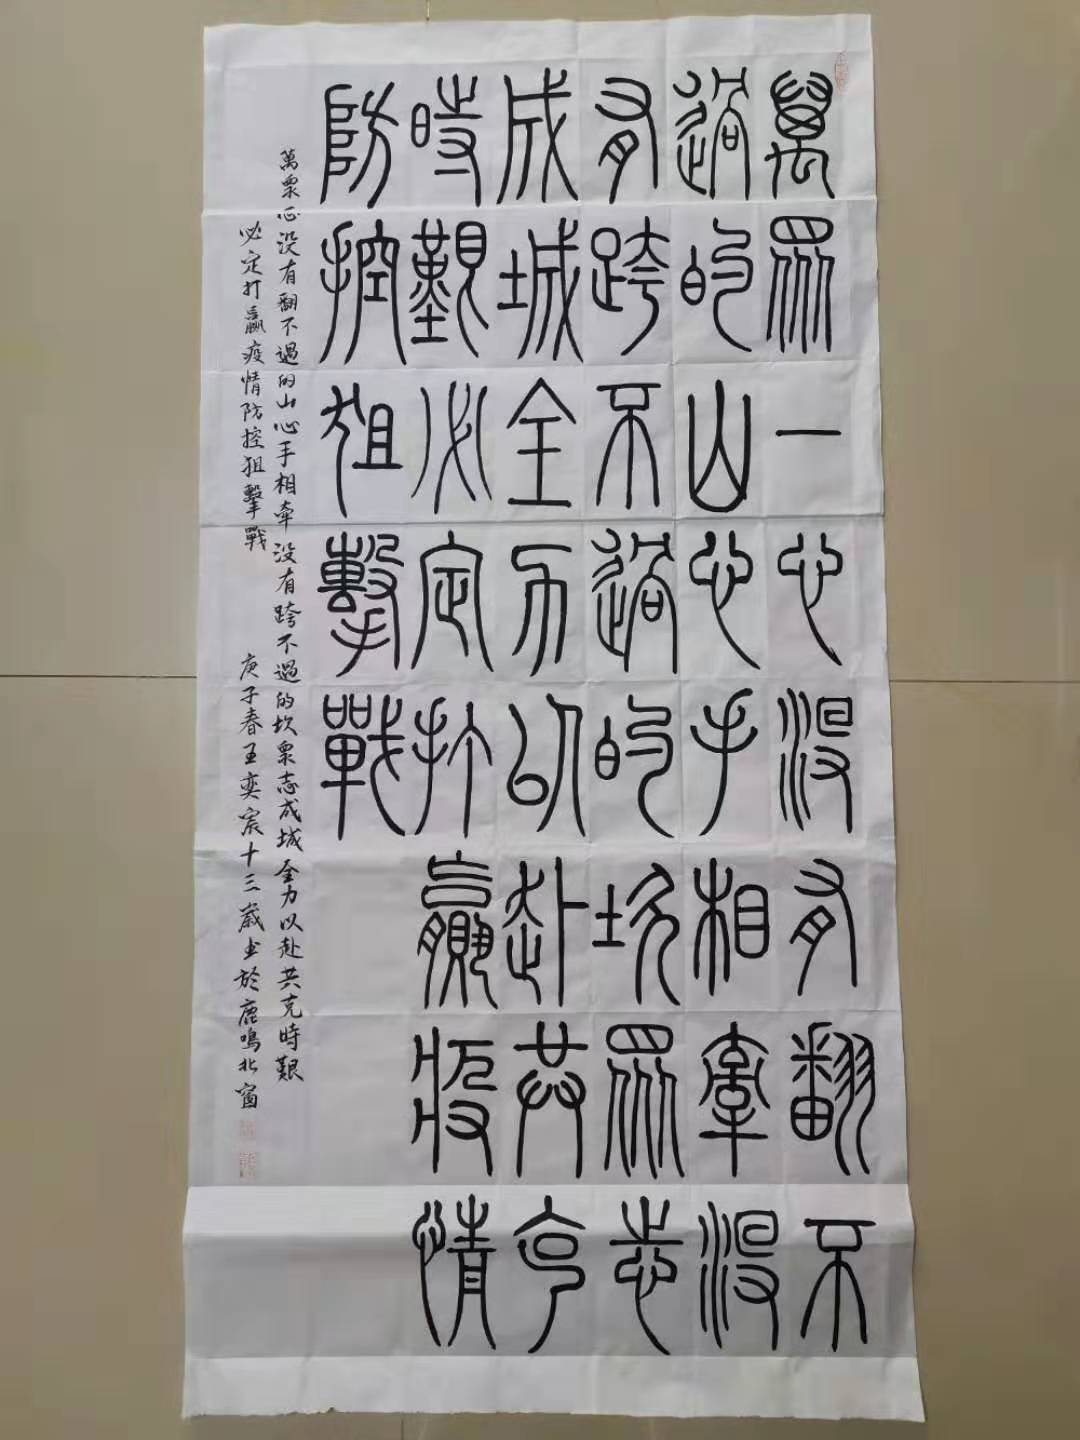 萬眾一心沒有翻不
過的山心手相牽沒
有跨不過的坎眾志
成城全力以赴共克
時艱必定打贏疫情
防控狙擊戰
萬眾一心没有翻不過的山心手相牽没有跨不過的坎眾志成城全力以赴共克時艱
必定打贏疫情防控狙擊戰 庚子春王奕宸十三歲书於鹿鳴北窗